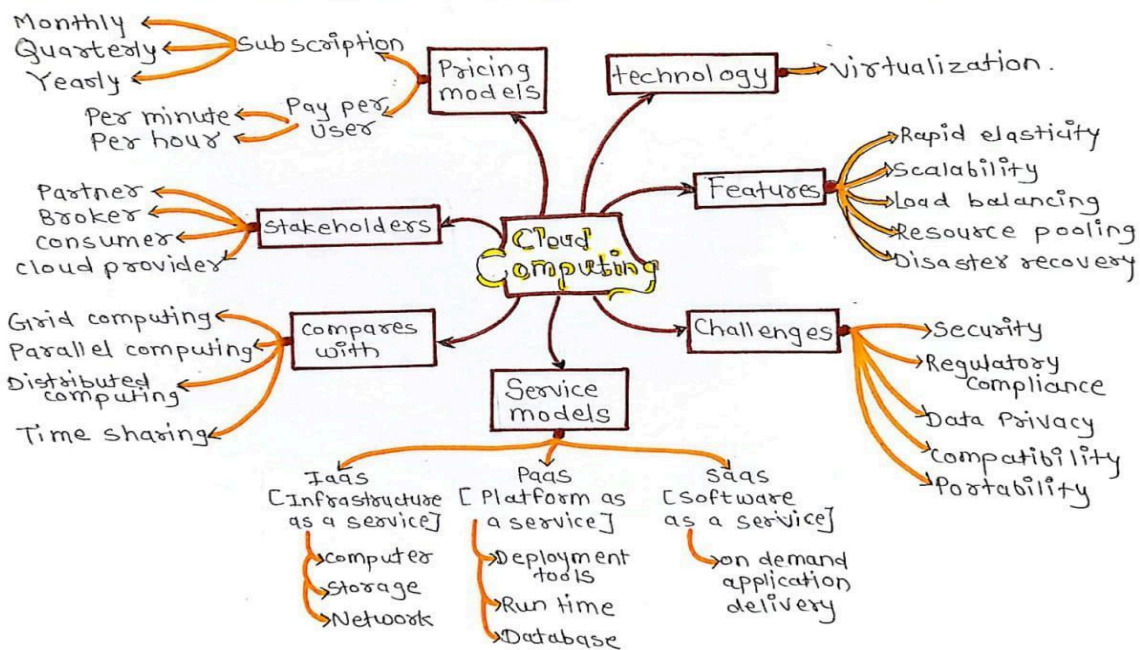 Cloud
Computing
Pricing
models
Subscription
Monthly
Quarterly
Yearly
Pay per
User
Per minute
Per hour
technology
Virtualization.
Features
Rapid elasticity
Scalability
Load balancing
Resource pooling
Disaster recovery
Stakeholders
Partner
Broker
Consumer
cloud provider
Compares
with
Grid computing
Parallel computing
Distributed
computing
Time sharing
Challenges
Security
Regulatory
compliance
Data Privacy
Compatibility
Portability
Service
models
IaaS
[Infrastructure
as a service]
computer
Storage
Network
PaaS
[Platform as
a service]
Deployment
tools
Run time
Database
SaaS
[Software
as a service]
on demand
application
delivery